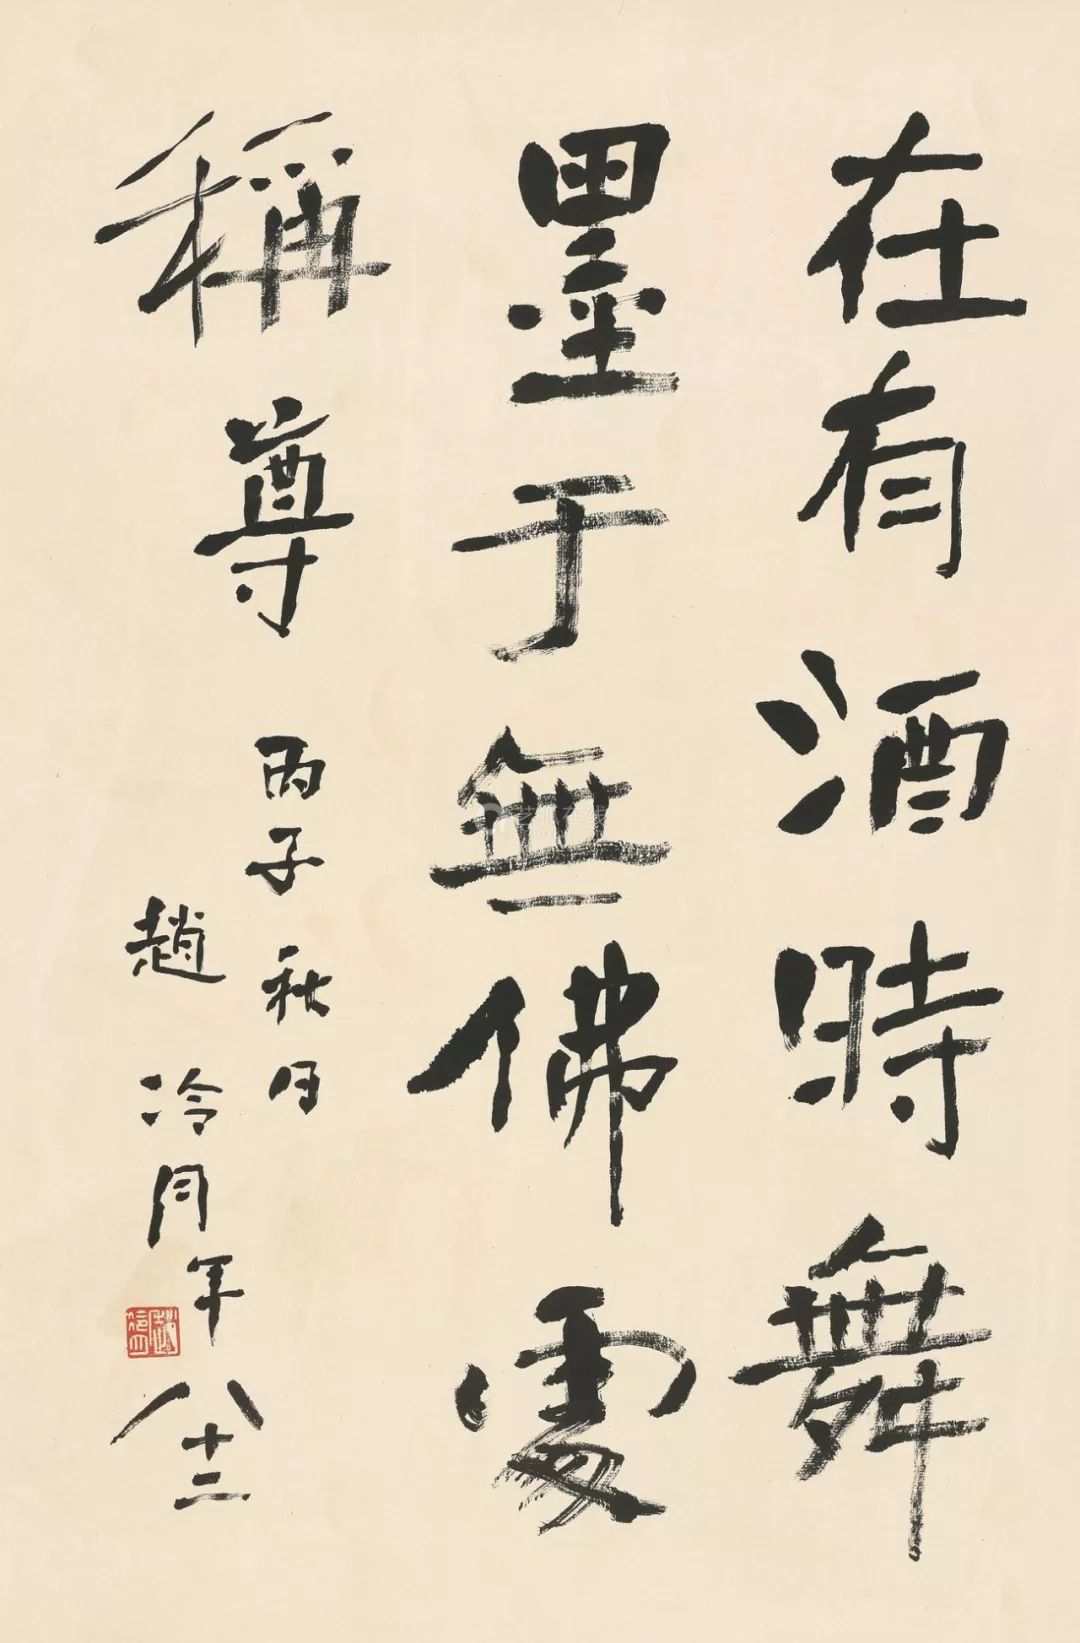 在有酒時舞
墨于無佛處
稱尊
丙子秋月
趙冷月年八十二
趙
冷月